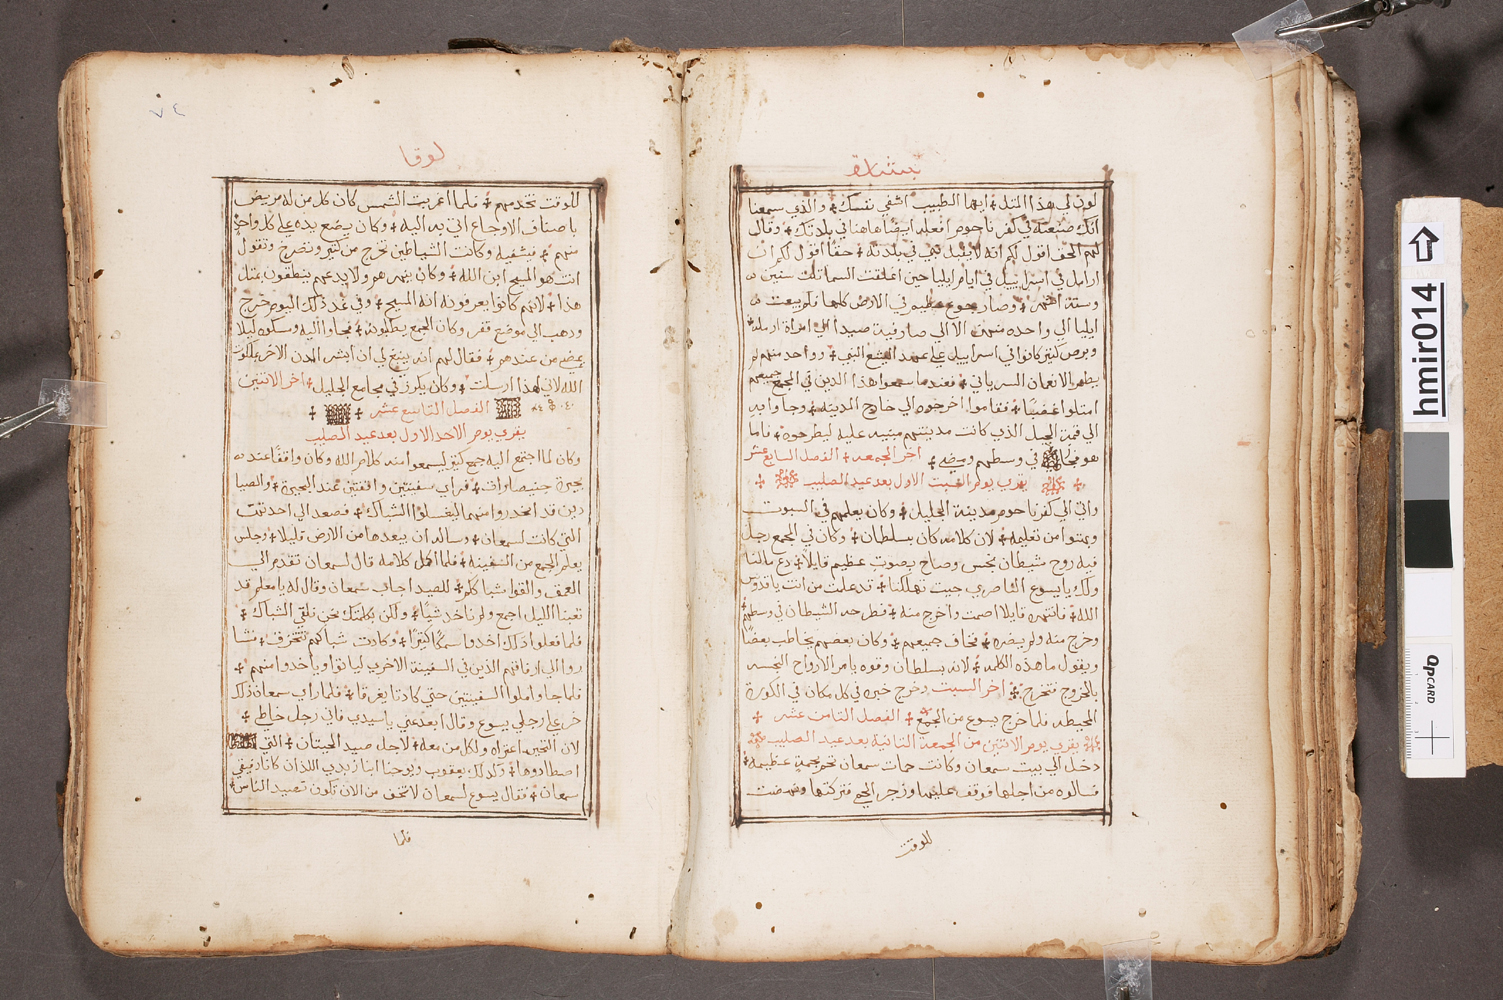 بشارة
لون لي هذا المثل ÷ ايها الطبيب اشفي نفسك ÷ والذي سمعنا
انك صنعته في كفرناحوم افعله ايضًا هاهنا في بلدتك ÷ وقال
لهم الحق اقول لكم انه لا يقبل نبي في بلدته ÷ حقًا اقول لكم ان
ارامل في اسراييل في ايام ايليا حين اغلقت السما تلك سنين
وستة اشهر ÷ وصار جوع عظيم في الارض كلها ÷ ولم يبعث
ايليا الي واحده منهن الا الي صارفية صيدا الي امراة ارمله ÷
وبرص كثير كانوا في اسراييل علي عهد اليشع النبي ÷ وواحد منهم لم
يطهر الا نعمان السرياني ÷ فعندما سمعوا هذا الذين في المجمع جميعهم
امتلوا غضبًا ÷ فقاموا اخرجوه الي خارج المدينه ÷ وجاوا به
الي قمة الجبل الذي كانت مدينتهم مبنيه عليه ليطرحوه ÷ فاما
هو فجاز في وسطهم ومضي ÷ اخر الجمعه ÷ الفصل السابع عشر
يقري يوم السبت الاول بعد عيد الصليب
واتي الي كفرناحوم مدينة الجليل ÷ وكان يعلمهم في السبوت
وبهتوا من تعليمه ÷ لان كلامه كان بسلطان ÷ وكان في المجمع رجل
فيه روح شيطان نجس وصاح بصوت عظيم قايلا ÷ دع مالنا
ولك يا يسوع الناصري جيت تهلكنا ÷ قد علمت من انت يا قدوس
الله ÷ فانتهره قايلا اصمت واخرج منه ÷ فطرحه الشيطان في وسطهم
وخرج منه ولم يضره ÷ فخاف جميعهم ÷ وكان بعضهم يخاطب بعضًا
ويقول ما هذه الكلمه ÷ لانه بسلطان وقوه يامر الارواح النجسه
بالخروج فتخرج ÷ اخر السبت وخرج خبره في كل مكان في الكورة
المحيطه فلما خرج يسوع من المجمع ÷ الفصل الثامن عشر ÷
يقري يوم الاثنين من الجمعة الثانية بعد عيد الصليب
دخل الي بيت سمعان وكانت حمات سمعان تحم بحمي عظيمه ÷
فسالوه من اجلها فوقف عليها وزجر الحمي فتركتها ونهضت
للوقت
٧٤
لوقا
للوقت تخدمهم ÷ فلما اغربت الشمس كان كل من له مريض
باصناف الاوجاع اتي به اليه ÷ وكان يضع يده علي كل واحد
منهم ÷ فيشفيه وكانت الشياطين تخرج من كثير وتصرخ وتقول
انت هو المسيح ابن الله ÷ وكان ينهرهم ولا يدعهم ينطقون بمثل
هذا ÷ لانهم كانوا يعرفونه انه المسيح ÷ وفي غد ذلك اليوم خرج
وذهب الي موضع قفر وكان الجمع يطلبونه ÷ فجاوا اليه ومسكوه ليلا
يمضي من عندهم ÷ فقال لهم انه ينبغي لي ان ابشر المدن الاخر بملكوت
الله لاني لهذا ارسلت ÷ وكان يكرز في مجامع الجليل ÷ اخر الاثنين
الفصل التاسع عشر ÷
يقري يوم الاحد الاول بعد عيد الصليب
وكان لما اجتمع اليه جمع كثير ليسمعوا منه كلام الله وكان واقفًا عند
بحيرة جنيصارات ÷ فراي سفينتين واقفتين عند البحيرة ÷ والصيا
دين قد انحدروا منهما ليغسلوا الشباك ÷ فصعد الي احدتهن
التي كانت لسمعان ÷ وساله ان يبعدها من الارض قليلا ÷ وجلس
يعلم الجمع من السفينه ÷ فلما اكمل كلامه قال لسمعان تقدم الي
العمق والقوا شباككم ÷ للصيد اجاب سمعان وقال له يا معلم قد
تعبنا الليل اجمع ولم ناخد شيًا ÷ ولكن بكلمتك نحن نلقي الشباك ÷
فلما فعلوا ذلك اخدوا سمكًا كثيرًا ÷ وكادت شباكهم تتخرق ÷ فاشا
روا الي رفاقهم الذين في السفينة الاخري لياتوا وياخدوا منهم ÷
فلما جاوا ملوا السفينتين حتي كادتا يغرقا ÷ فلما راي سمعان ذلك
خر علي رجلي يسوع وقال ابعد عني يا سيدي فاني رجل خاطي ÷
لان التحير اعتراه ولكل من معه ÷ لاجل صيد الحيتان ÷ التي
اصطادوها ÷ وكذلك يعقوب ويوحنا ابنا زبدي اللذان كانا رفيقي
سمعان ÷ فقال يسوع لسمعان لا تخف من الان تكون تصيد الناس ÷
فلما
hmir014
QPCARD